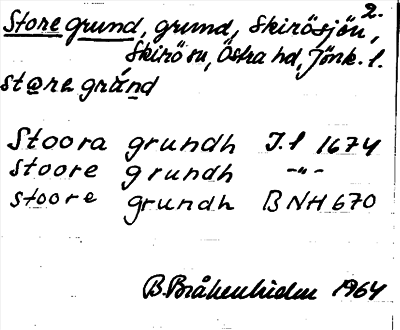 Store grund, grund, Skirösjön 2.,
Skirö sn, Östra hd, Jönk. l.
store grund
Stoora grundh J. l 1674
Stoore grundh -"-
stoore grundh BNH 670
B. Bråkenhielm 1964